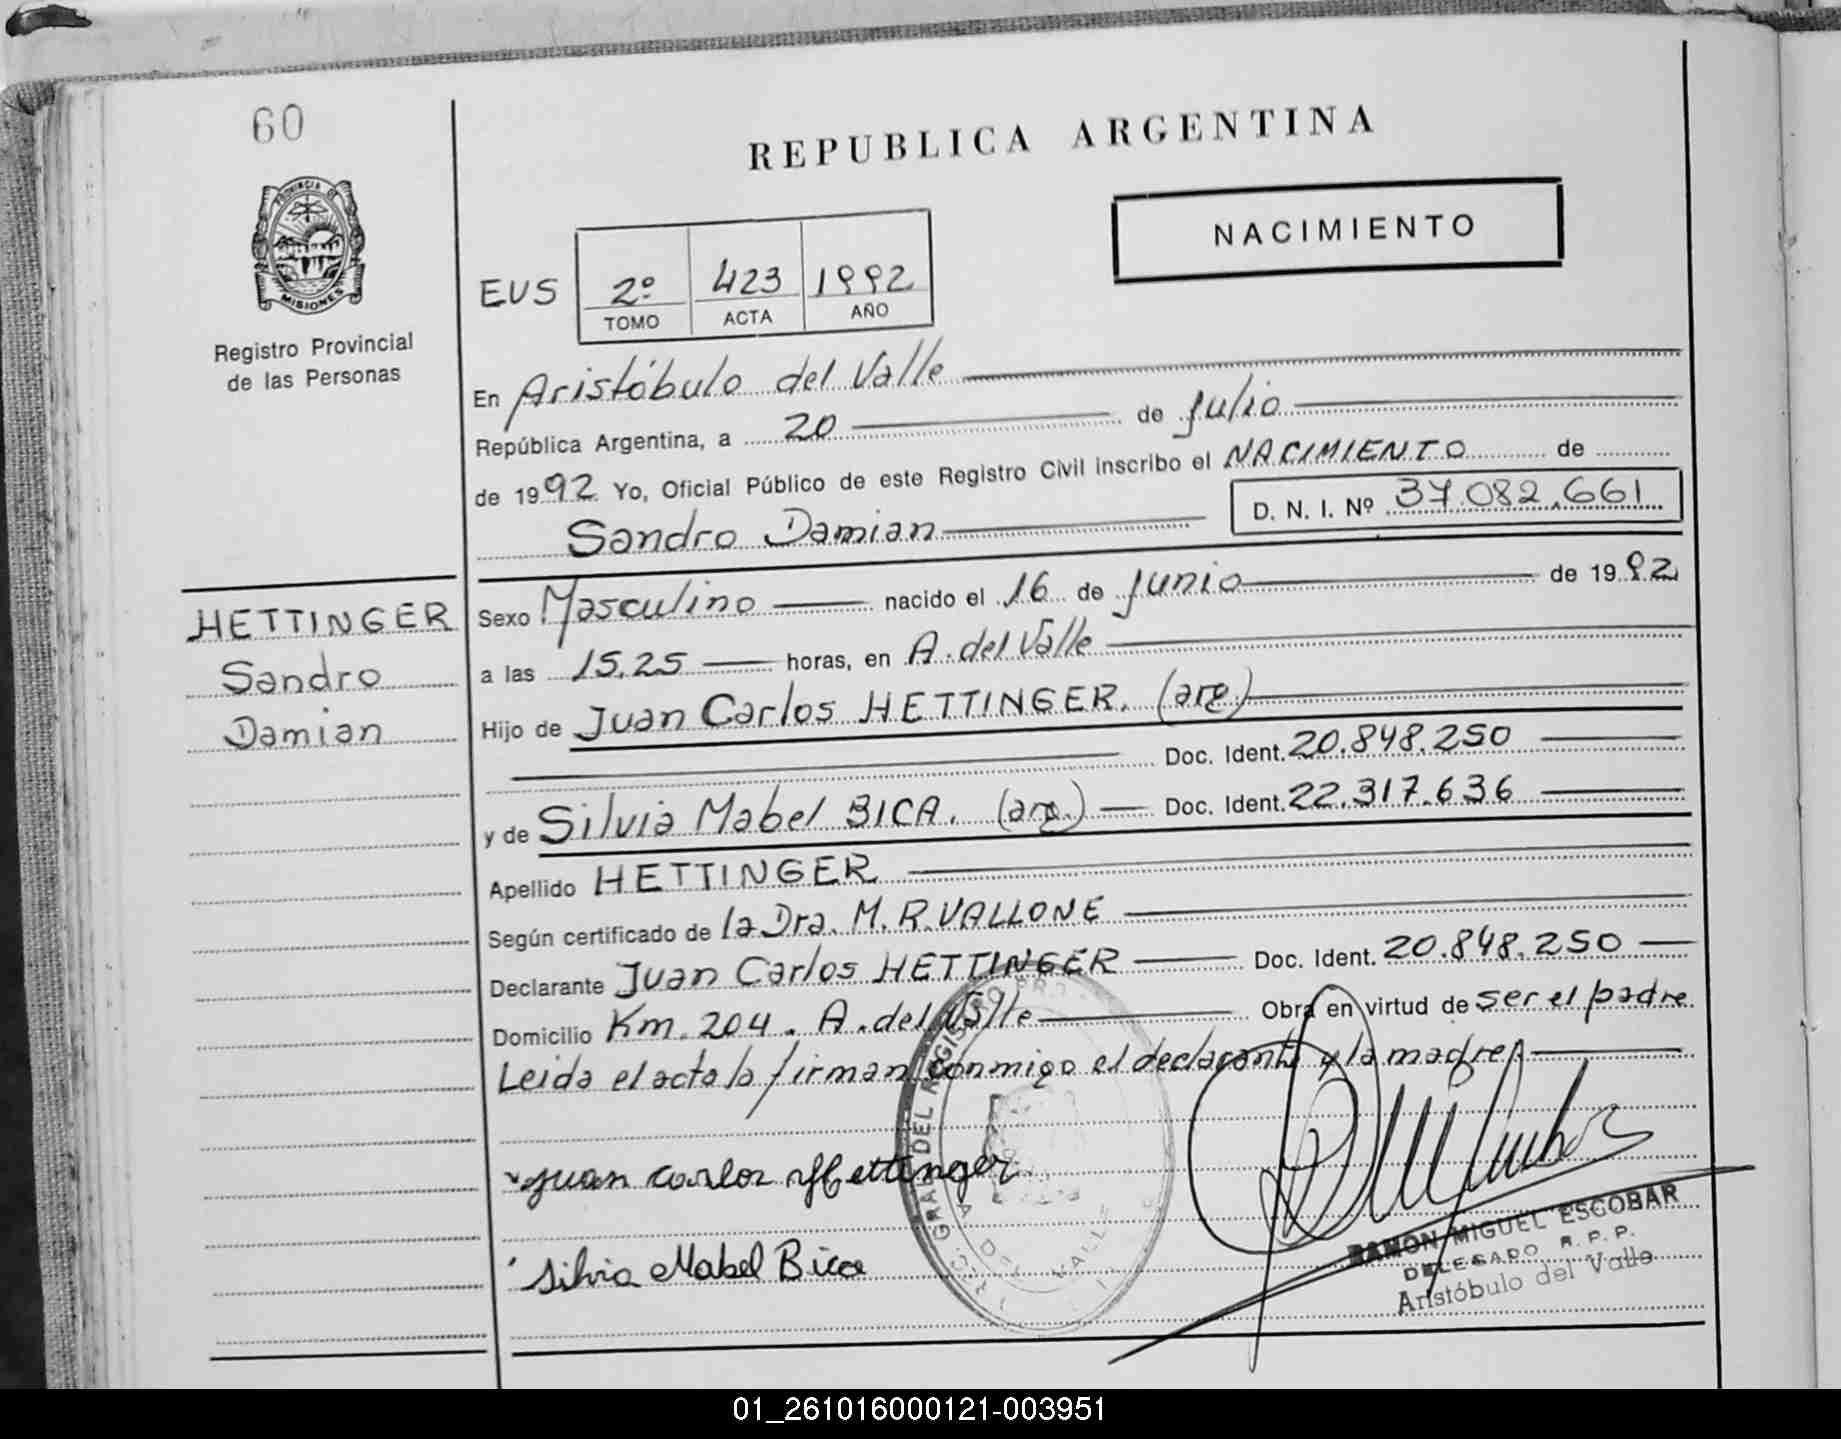 60
REPUBLICA ARGENTINA
PROVINCIA DE
MISIONES
NACIMIENTO
EUS 2º 423 1992
TOMO ACTA AÑO
Registro Provincial
de las Personas
En Aristóbulo del Valle
República Argentina, a 20 de Julio
de 1992 Yo, Oficial Público de este Registro Civil inscribo el NACIMIENTO de
Sandro Damian D. N. I. Nº 37.082.661
HETTINGER
Sandro
Damian
Sexo Masculino nacido el 16 de Junio de 1992
a las 15.25 horas, en A. del Valle
Hijo de Juan Carlos HETTINGER. (arg.)
Doc. Ident. 20.848.250
y de Silvia Mabel BICA. (arg.) Doc. Ident. 22.317.636
Apellido HETTINGER
Según certificado de la Dra. M. R. VALLONE
Declarante Juan Carlos HETTINGER Doc. Ident. 20.848.250
Domicilio Km. 204. A. del Valle Obra en virtud de ser el padre
Leida el acta la firman conmigo el declarante y la madre
Juan Carlos Hettinger
Silvia Mabel Bica
DEL REGISTRO
DEL VALLE
RAMON MIGUEL ESCOBAR
DELEGADO R. P. P.
Aristóbulo del Valle
01_261016000121-003951